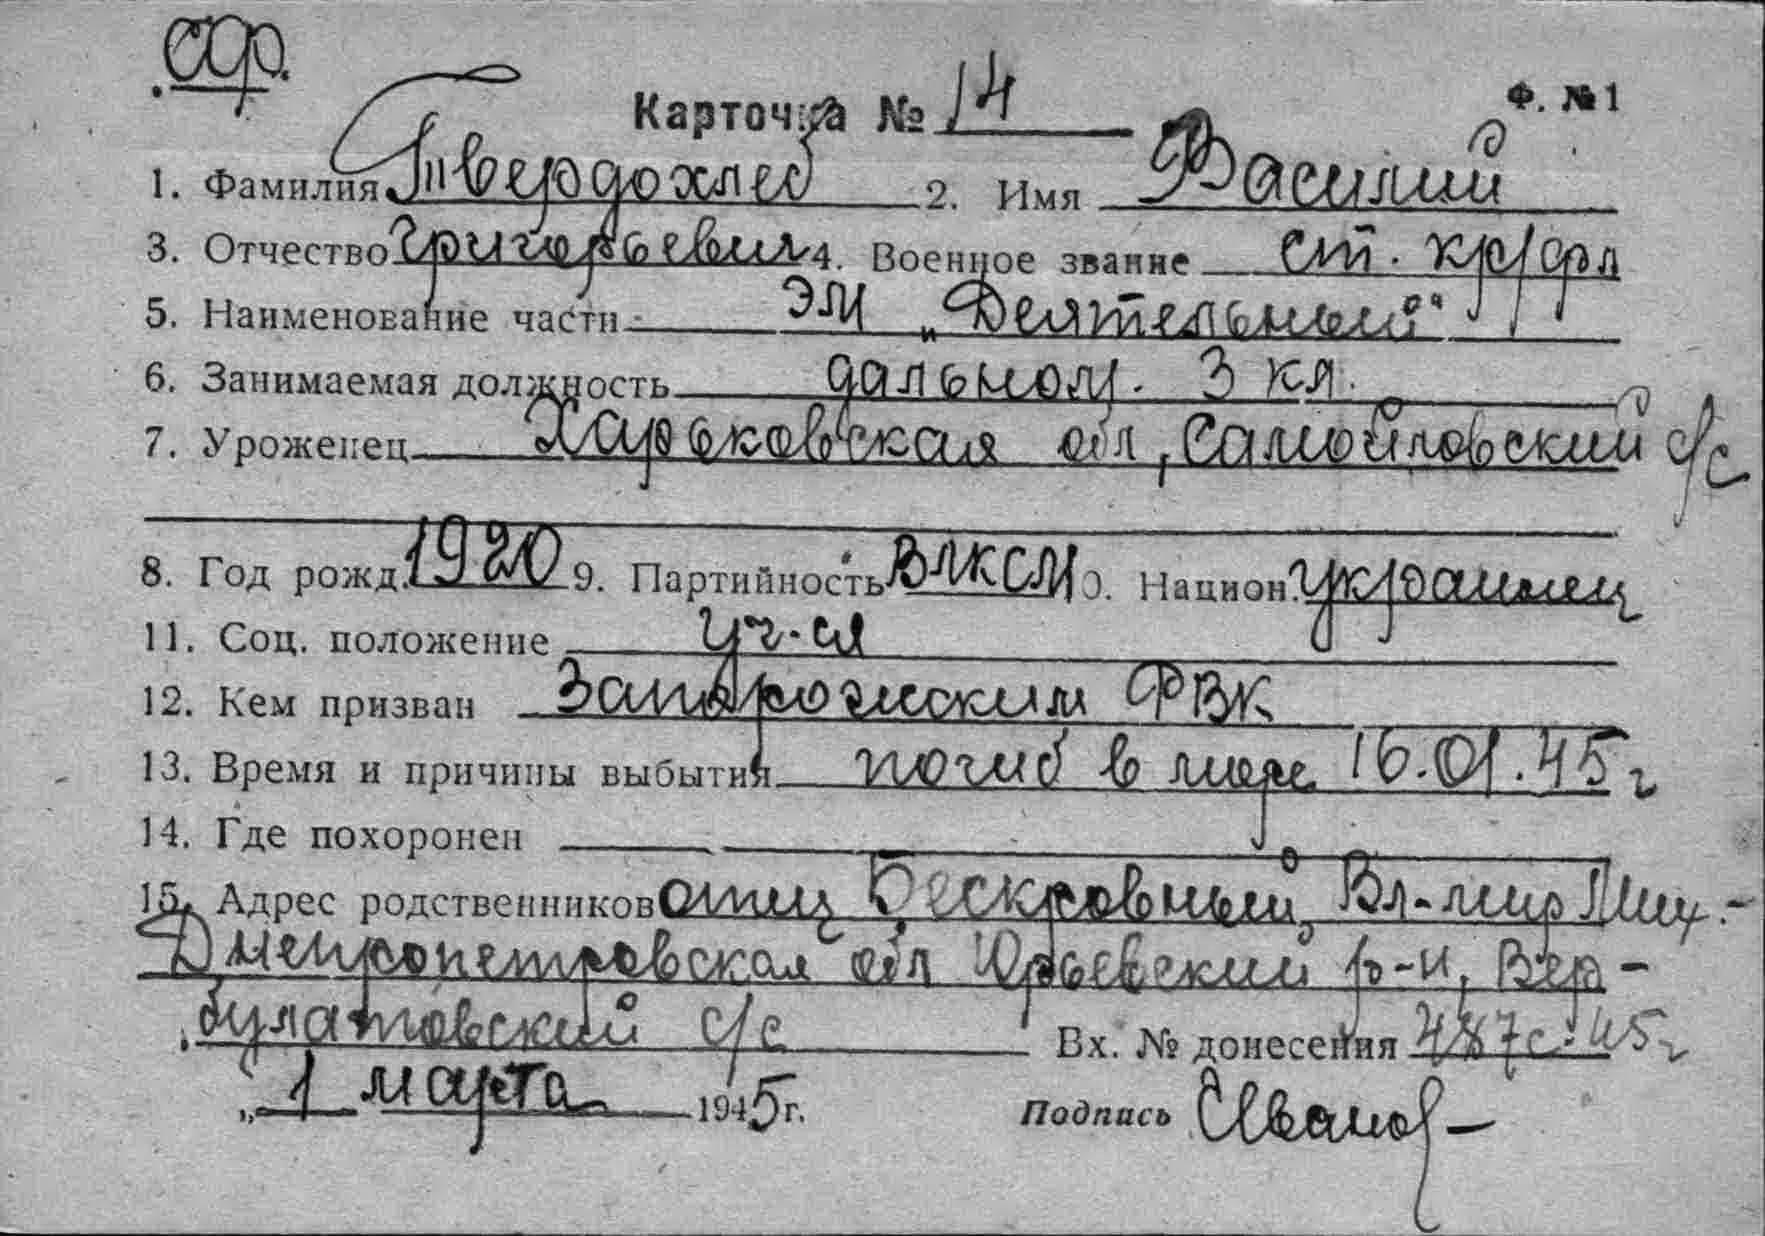 СФ.
Карточка № 14
Ф. № 1
1. Фамилия Твердохлеб 2. Имя Василий
3. Отчество Григорьевич 4. Военное звание ст. кр/фл
5. Наименование части ЭМ „Деятельный"
6. Занимаемая должность дальном. 3 кл.
7. Уроженец Харьковская обл, Самойловский с/с
8. Год рожд. 1920 9. Партийность ВЛКСМ 10. Национ. украинец
11. Соц. положение уч-ся
12. Кем призван Запорожским ФВК
13. Время и причины выбытия погиб в море 16.01.45 г
14. Где похоронен
15. Адрес родственников отец Бескровный, Вл-мир Мих.-
Днепропетровская обл Юрьевский р-н, Вер-
булатовский с/с Вх. № донесения 487с-45г
„ 1 марта 1945 г. Подпись Иванов